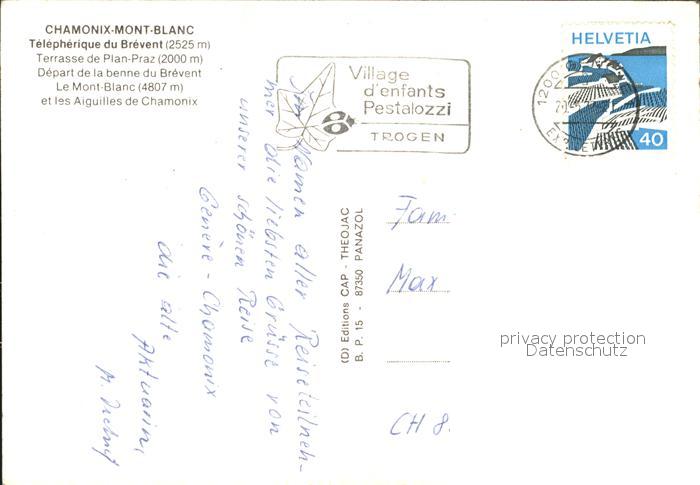 CHAMONIX-MONT-BLANC
Téléphérique du Brévent (2525 m)
Terrasse de Plan-Praz (2000 m)
Départ de la benne du Brévent
Le Mont-Blanc (4807 m)
et les Aiguilles de Chamonix
Village
d'enfants
Pestalozzi
TROGEN
HELVETIA
40
1200
Im Namen aller Reiseteilneh-
mer die liebsten Grüsse von
unserer schönen Reise
Genève - Chamonix
die alte
Aktuarin,
M.
(D) Editions CAP - THEOJAC
B. P. 15 - 87350 PANAZOL
Fam.
Max
CH 8.
privacy protection
Datenschutz